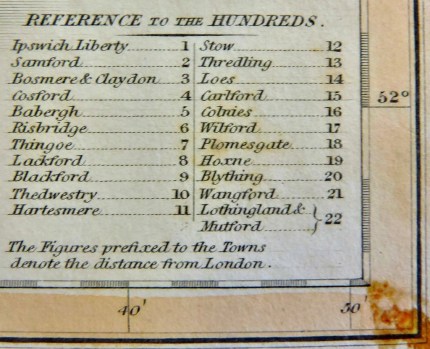 REFERENCE TO THE HUNDREDS.
Ipswich Liberty 1
Samford 2
Bosmere & Claydon 3
Cosford 4
Babergh 5
Risbridge 6
Thingoe 7
Lackford 8
Blackford 9
Thedwestry 10
Hartesmere 11
Stow 12
Thredling 13
Loes 14
Carlford 15
Colnies 16
Wilford 17
Plomesgate 18
Hoxne 19
Blything 20
Wangford 21
Lothingland &
Mutford 22
The Figures prefixed to the Towns
denote the distance from London.
52°
40'
30'